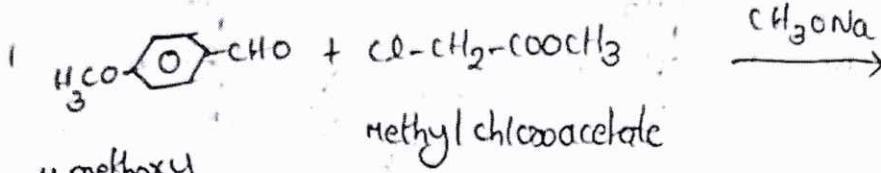 1 H3CO-CHO + Cl-CH2-COOCH3 CH3ONa
Methyl chloroacetate
4 methoxy